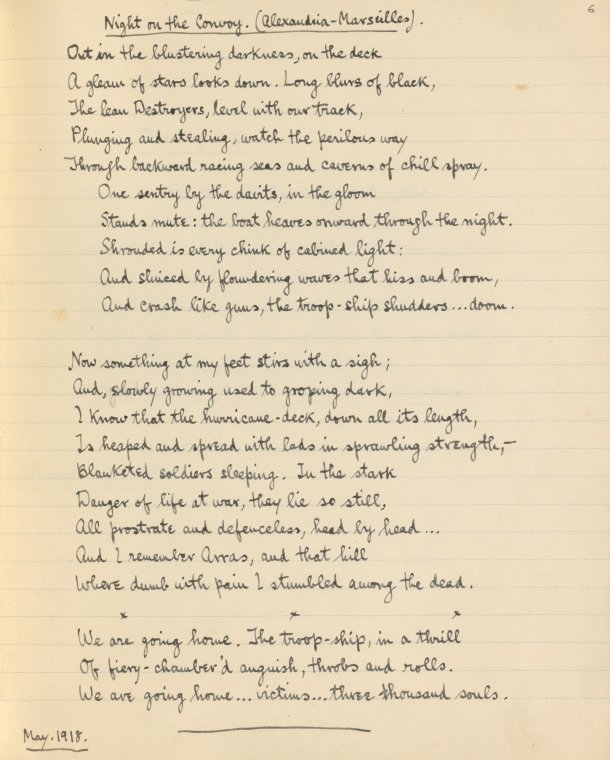 6
Night on the Convoy. (Alexandria-Marseilles).
Out in the blustering darkness, on the deck
A gleam of stars looks down. Long blurs of black,
The lean Destroyers, level with our track,
Plunging and stealing, watch the perilous way
Through backward racing seas and caverns of chill spray.
One sentry by the davits, in the gloom
Stands mute: the boat heaves onward through the night.
Shrouded is every chink of cabined light:
And sluiced by floundering waves that hiss and boom,
And crash like guns, the troop-ship shudders... doom.
Now something at my feet stirs with a sigh;
And, slowly growing used to groping dark,
I know that the hurricane-deck, down all its length,
Is heaped and spread with lads in sprawling strength,—
Blanketed soldiers sleeping. In the stark
Danger of life at war, they lie so still,
All prostrate and defenceless, head by head...
And I remember Arras, and that hill
Where dumb with pain I stumbled among the dead.
x x x
We are going home. The troop-ship, in a thrill
Of fiery-chamber'd anguish, throbs and rolls.
We are going home... victims... three thousand souls.
May. 1918.